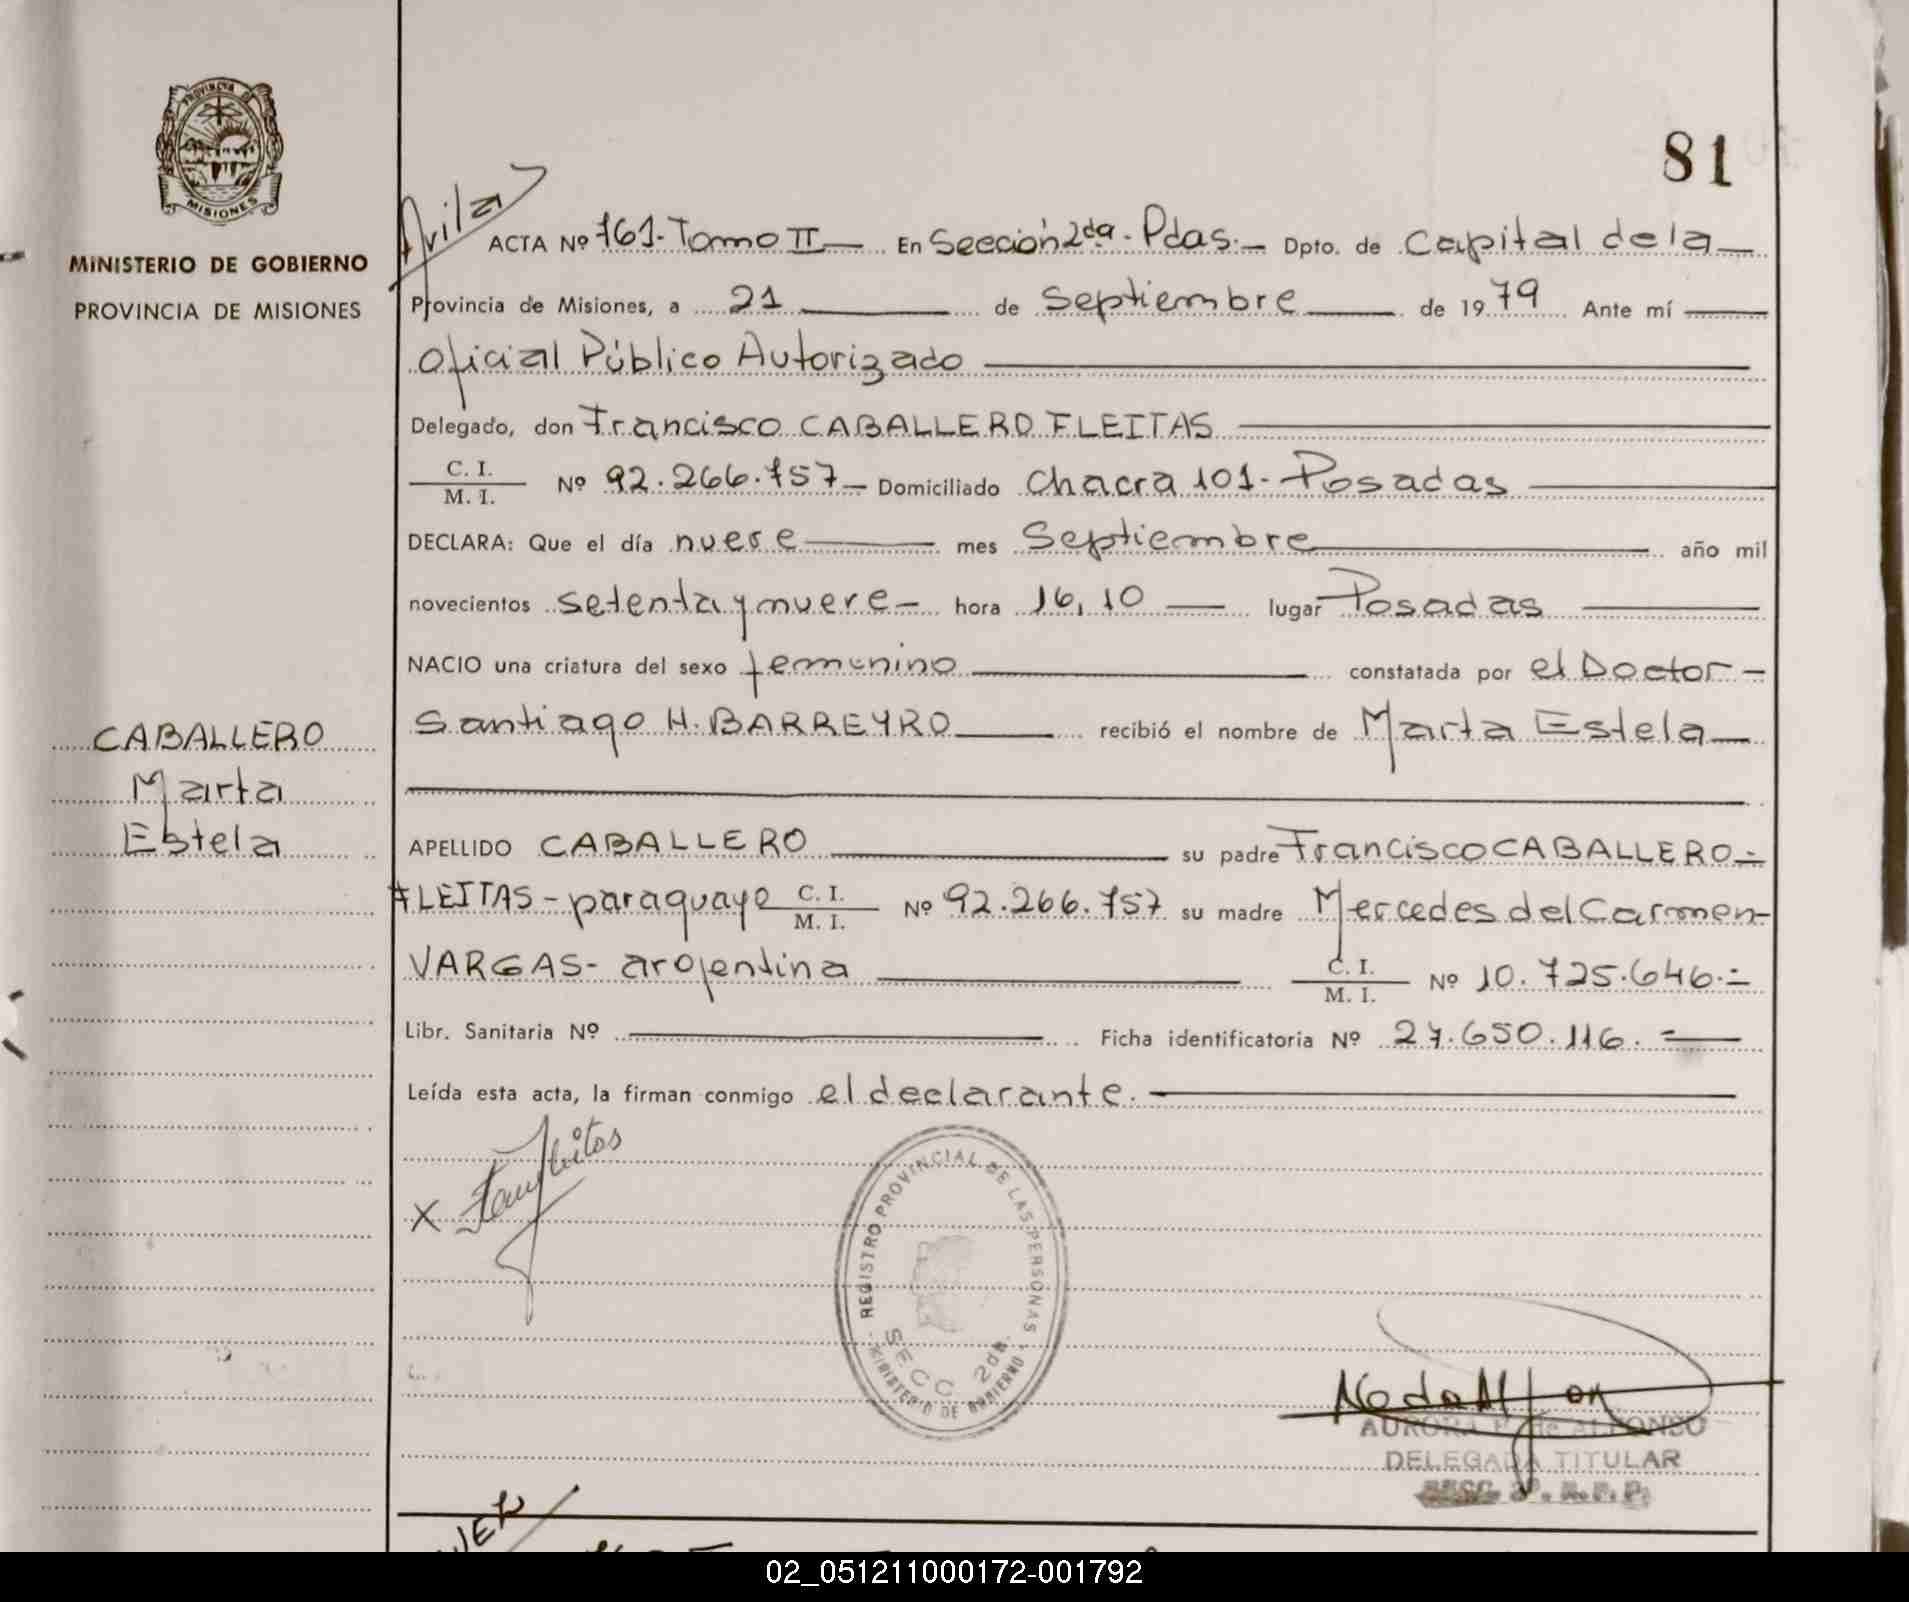 81
PROVINCIA DE
MISIONES
MINISTERIO DE GOBIERNO
PROVINCIA DE MISIONES
Avila
ACTA Nº 761-Tomo II — En Sección 2da - Pdas.- Dpto. de Capital de la —
Provincia de Misiones, a 21 — de Septiembre — de 1979 Ante mí —
Oficial Público Autorizado —
Delegado, don Francisco CABALLERO FLEITAS —
C. I.
M. I. Nº 92.266.757 — Domiciliado Chacra 101 - Posadas —
DECLARA: Que el día nueve — mes Septiembre — año mil
novecientos setenta y nueve — hora 16,10 — lugar Posadas —
NACIO una criatura del sexo femenino — constatada por el Doctor -
Santiago H. BARREYRO — recibió el nombre de Marta Estela —
CABALLERO
Marta
Estela
APELLIDO CABALLERO — su padre Francisco CABALLERO -
FLEITAS - paraguayo C. I.
M. I. Nº 92.266.757 su madre Mercedes del Carmen -
VARGAS - argentina — C. I.
M. I. Nº 10.725.646.=
Libr. Sanitaria Nº — Ficha identificatoria Nº 27.650.116. =
Leída esta acta, la firman conmigo el declarante. —
X
REGISTRO PROVINCIAL DE LAS PERSONAS
SECC 2da.
MINISTERIO DE GOBIERNO
AURORA de ALFONSO
DELEGADA TITULAR
SECC. 2ª. R.P.P.
02_051211000172-001792